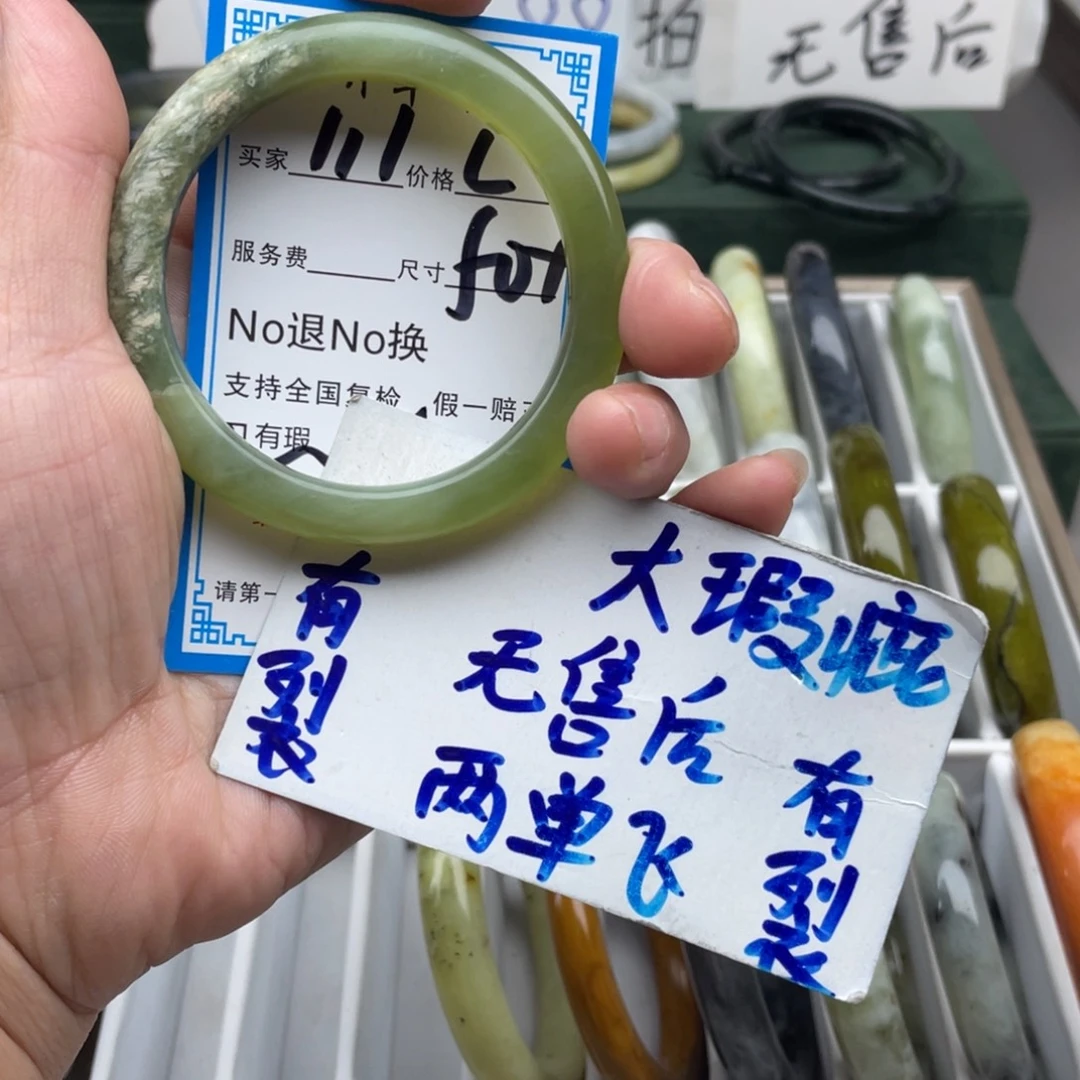 拍
无售后
买家 价格
服务费 尺寸
No退No换
支持全国复检 假一赔
有瑕
请第一
大瑕疵
有裂
无售后
两单飞
有裂